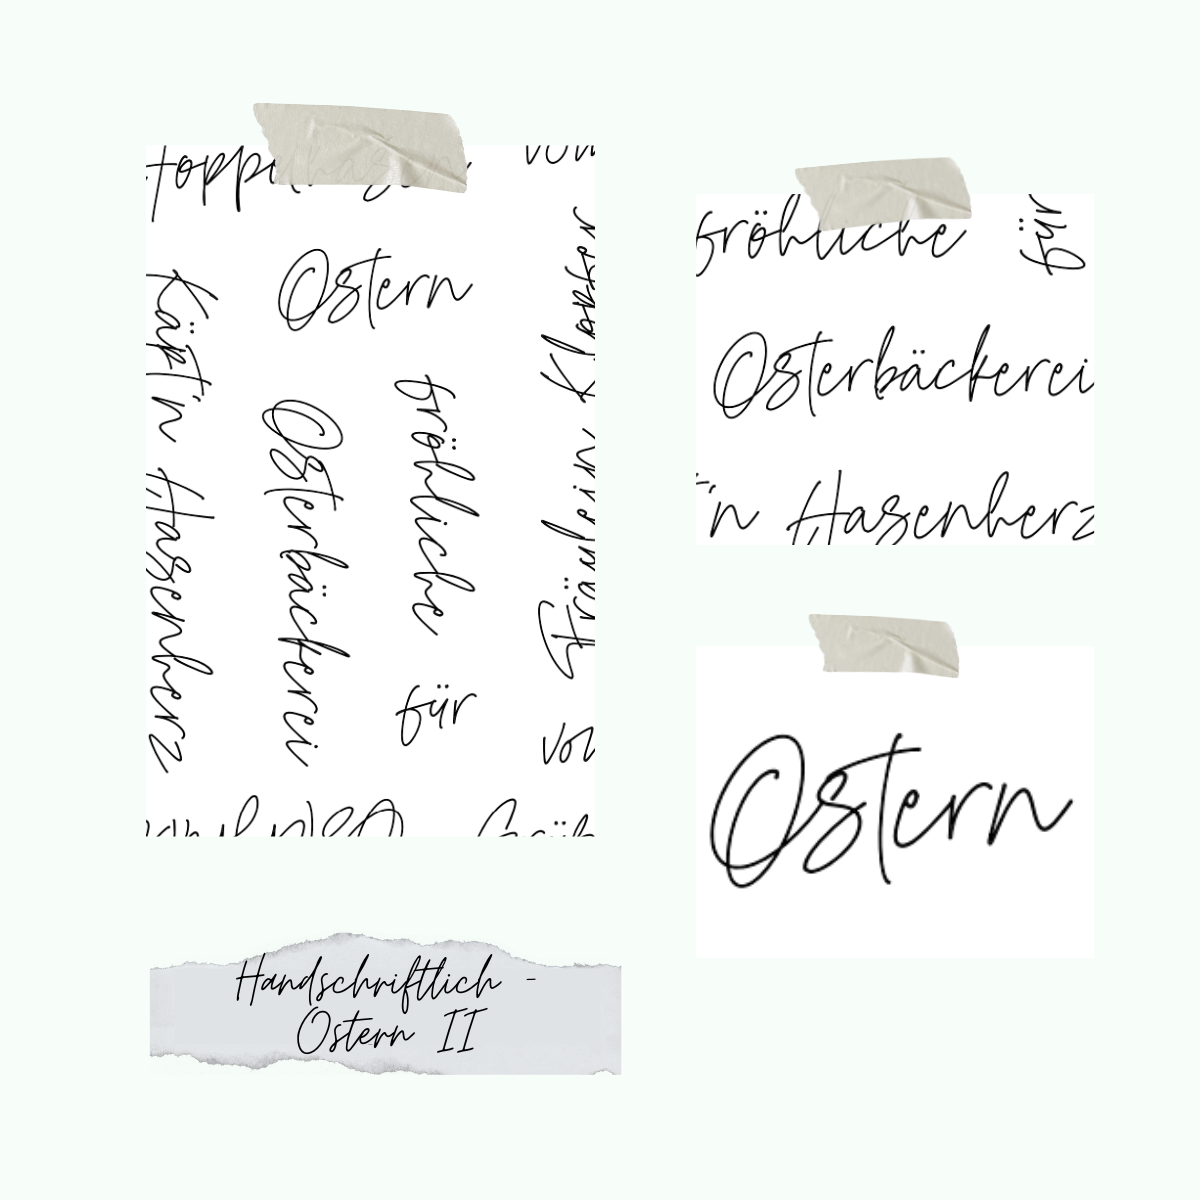 Ostern
Käpt'n Hasenherz
Osterbäckerei
fröhliche
Fräulein Klopfer
für
fröhliche
für
Osterbäckerei
t'n Hasenherz
Ostern
Handschriftlich -
Ostern II